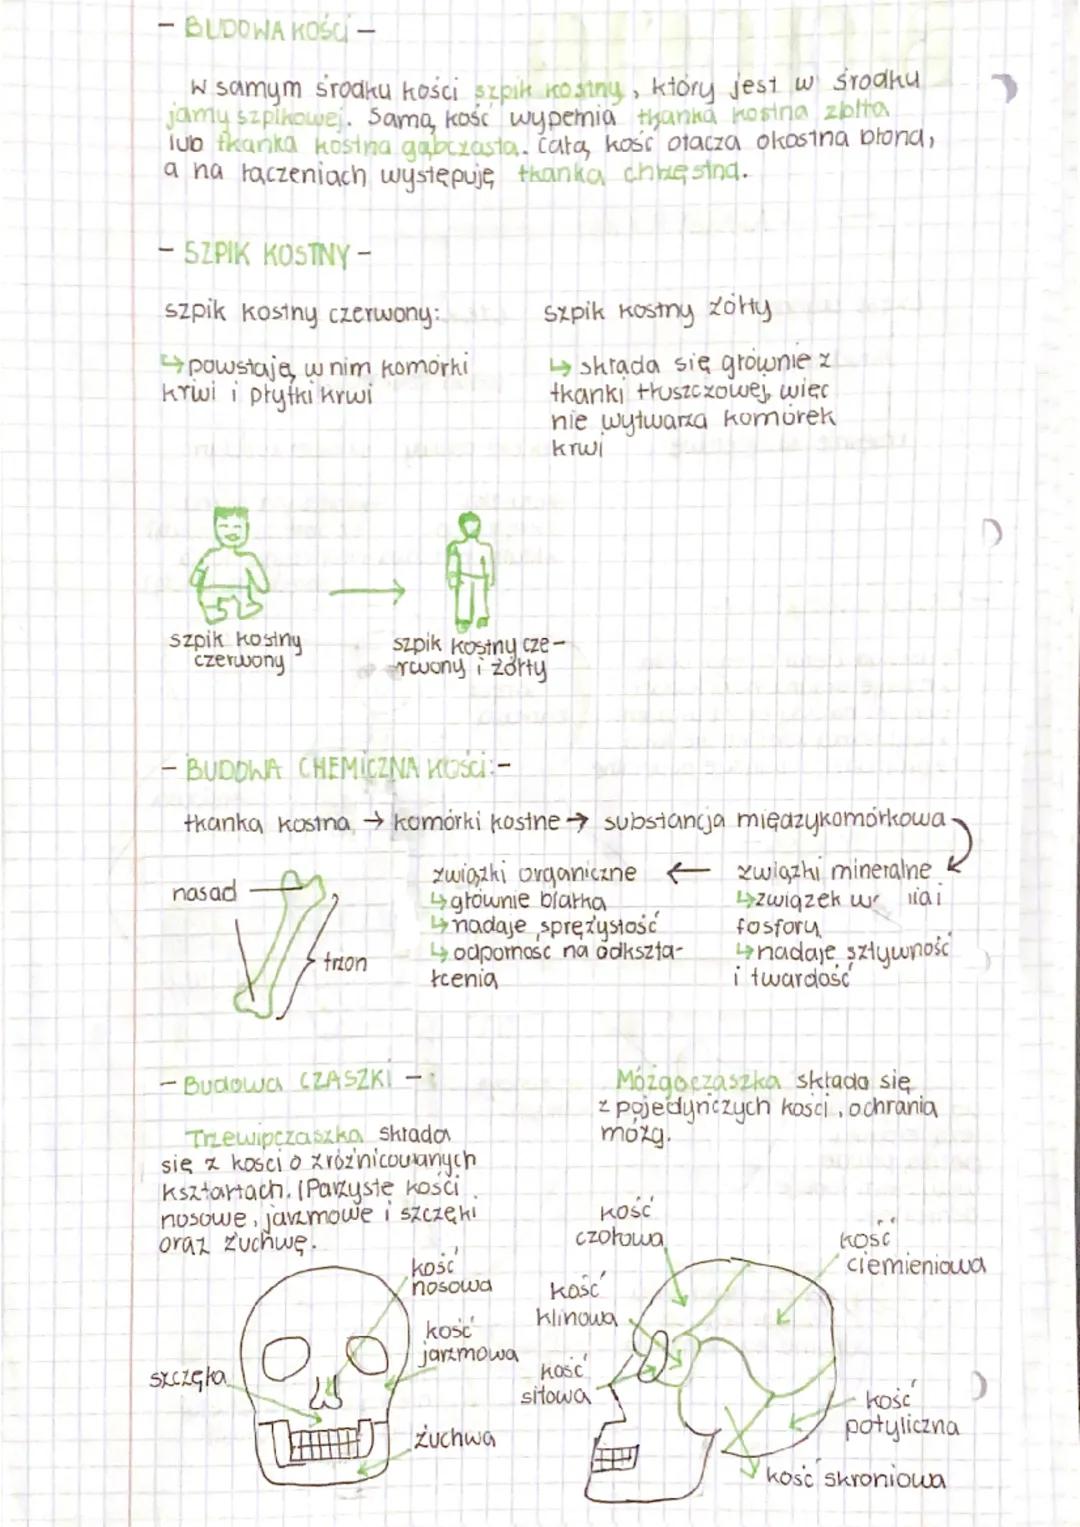 - BUDOWA KOŚCI -
W samym środku kości szpik kostny, który jest w środku
jamy szpikowej. Samą kość wypełnia tkanka kostna zbita
lub tkanka kostna gąbczasta. Całą kość otacza okostna błona,
a na łączeniach występuję tkanka chrzęstna.
- SZPIK KOSTNY -
szpik kostny czerwony:
↳ powstają w nim komórki
krwi i płytki krwi
szpik kostny żółty
↳ składa się głównie z
tkanki tłuszczowej, więc
nie wytwarza komórek
krwi
szpik kostny
czerwony
szpik kostny cze-
rwony i żółty
- BUDOWA CHEMICZNA KOŚCI: -
tkanka kostna → komórki kostne → substancja międzykomórkowa
nasad
trzon
związki organiczne ←
↳ głównie białka
↳ nadaje sprężystość
↳ odporność na odkszta-
łcenia
związki mineralne
↳ związek i
fosforu
↳ nadaje sztywność
i twardość
- Budowa CZASZKI -
Trzewioczaszka składa
się z kości o zróżnicowanych
kształtach. (Parzyste kości
nosowe, jarzmowe i szczęki
oraz żuchwę.
Mózgoczaszka składa się
z pojedyńczych kości, ochrania
mózg.
kość
nosowa
kość
jarzmowa
szczęka
żuchwa
kość
czołowa
kość
ciemieniowa
kość
klinowa
kość
sitowa
kość
potyliczna
kość skroniowa